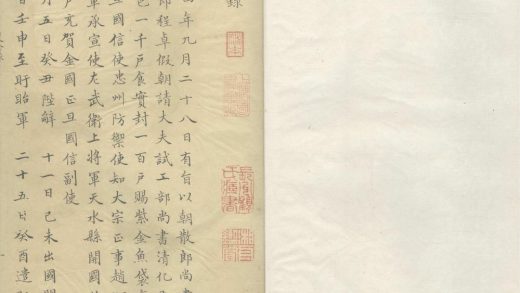 錄
年九月二十八日有旨以朝散郎尚
郎程卓假朝請大夫試工部尚書清化
邑一千戶食實封一百戶賜紫金魚袋
旦國信使忠州防禦使知大宗正事趙
軍承宣使左武衛上將軍天水縣開國
戶充賀金國正旦國信副使
月五日癸丑陛辭 十一日己未出國門
日壬申至盱眙軍 二十五日癸酉遣